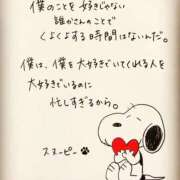 僕のことを好きじゃない
誰かさんのことで
くよくよする時間はないんだ。
僕は、僕を大好きでいてくれる人を
大好きでいるのに
忙しすぎるから。
スヌーピー